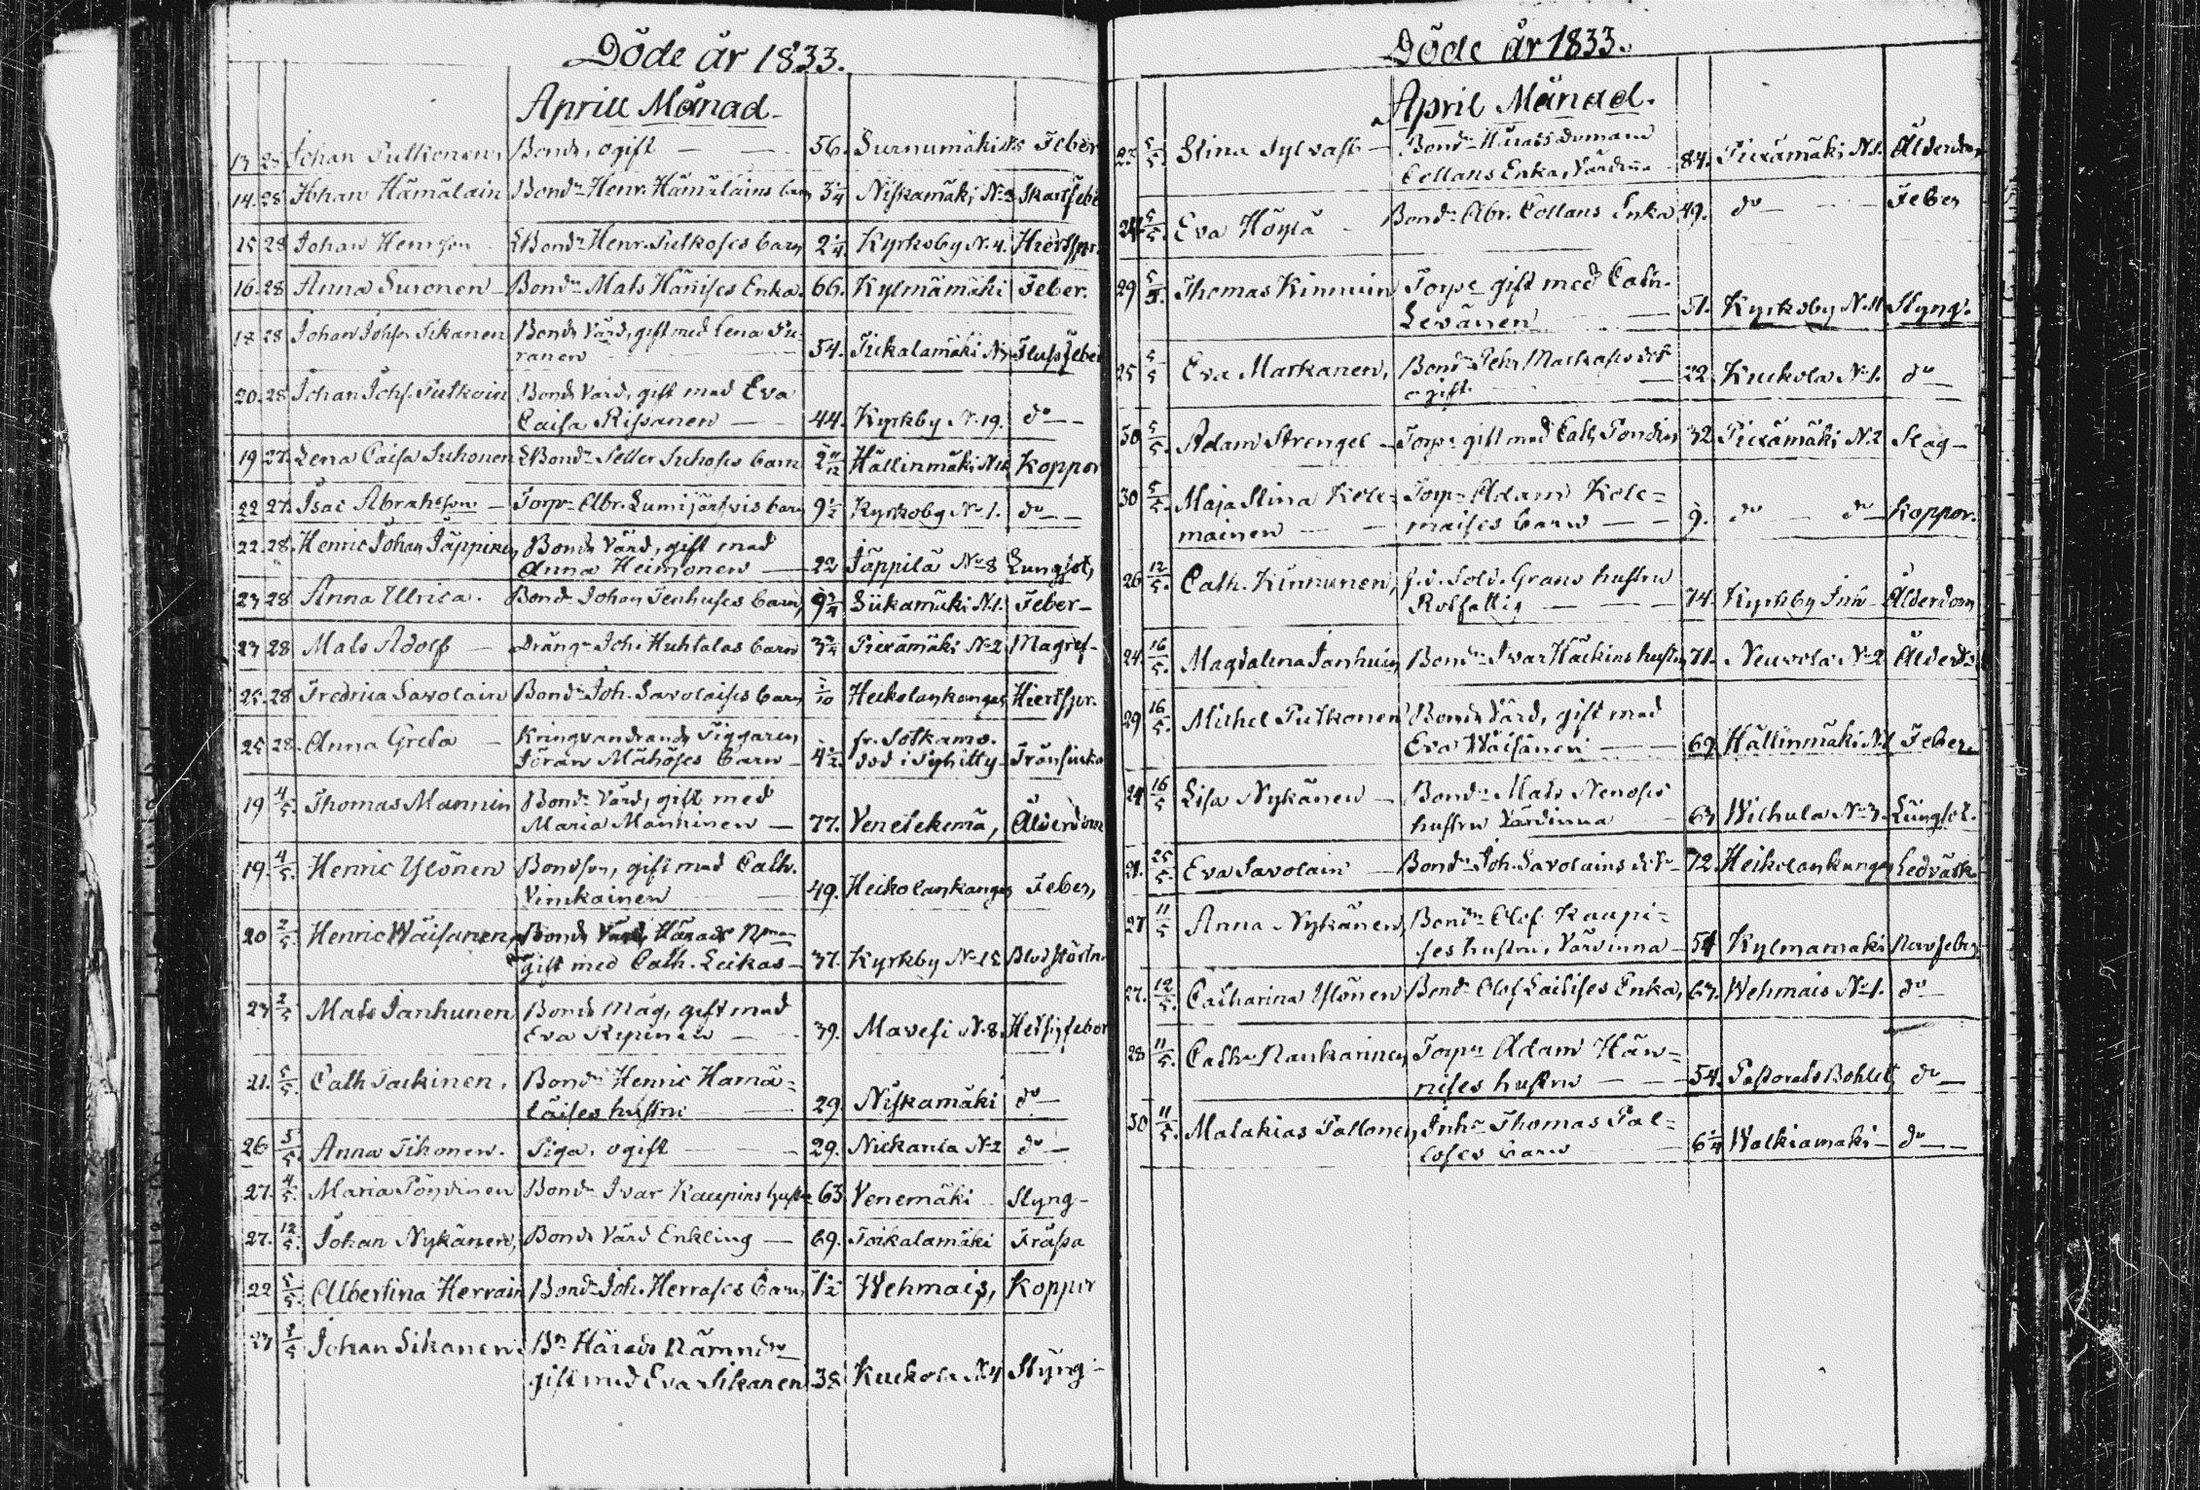 Döde år 1833.
Aprill Månad.
13 28 Johan Pulkonen, Bonde, ogift — — 56. Surnumäki Feber
14. 28 Johan Hämäläin Bondn Henr. Hämäläins barn 3 1/4 Niskamäki No 3 Skarlfeber
15 28 Johan Henrson Bondn Henr. Pulkoses barn 2 1/4. Kyrkoby N. 4. Hiertspr.
16. 28 Anna Suronen — Bondn Mats Hänises Enka. 66. Kylmämäki Feber.
18. 28 Johan Johs. Sikanen Bonde Värd, gift med Lena Pu-
ranen — 54. Tickalamäki Flussfeber
20. 28 Johan Johs. Pulkoin Bonde Värd, gift med Eva
Caisa Rissanen — 44. Kyrkby N. 19. do —
19 27. Lena Caisa Suhonen Bondn Petter Suhoses barn 2 11/12 Hällinmäki Koppor
22 27. Isac Abrahamson — Torpn Abr. Lumijärfvis barn 9 1/2 Kyrkoby No 1. do —
22. 28. Henric Johan Jäppinen, Bonde Värd, gift med
Anna Heinonen — 22 Jäppilä No 8 Lungsot,
23 28 Anna Ulrica. Bondn Johan Tenhuses barn, 9 3/4 Siikamäki N. 1. Feber —
23 28 Mats Adolf — Drängn Joh. Huhtalas barn 3 3/4 Piexämäki No 2 Magref —
25. 28 Fredrica Savolain Bondn Joh. Savolaises barn 3/10 Heikolankangas Hiertspr.
25 28. Anna Greta — Kringvandrande Tiggaren fr. Sotkamo.
Jöran Mähöses barn — 4 1/2 död i Pyhitty Trånsiuka
19 4/5 Thomas Mannin Bonde Värd, gift med
Maria Manninen — 77. Venetekemä, Ålderdom
19. 4/5. Henric Ylönen Bondson, gift med Cath.
Vinikainen 49. Heikolankangas Feber,
20 2/5. Henric Wäisänen, Bonde Värd, Härads Nman
gift med Cath. Leikas — 37. Kyrkby No 15 Blodstörtn.
23 2/5 Mats Janhunen Bonde Måg, gift med
Eva — 39. Mavesi N. 8. Hetsigfeber
21. 5/5. Cath Tarkinen, Bondn Henric Hämä=
läises hustru 29. Niskamäki do —
26 5/5. Anna Tihonen. Piga, ogift — 29. Nickarila No 2 do —
27. 4/5. Maria Pöndinen Bondn Ivar Kaupins hustru 63 Venemäki Styng —
27. 12/5. Johan Nykänen, Bonde Värd Enkling — 69. Toikalamäki Frässa
22 5/5. Albertina Herrain Bondn Joh. Herrases barn, 1 1/2 Wehmais, Koppor
27 9/5 Johan Sikanen. Bn Härads Nämndn
gift med Eva Sikanen 38 Kuckola N 4 Styng —
Döde år 1833.
April Månad.
23 5/5. Stina Sylvast — Bondn Härads domaren
Collans Enka, Värdinna 84. Piexämäki N. 1. Ålderdom
24 5/5. Eva Höylä — Bondn Abr. Collans Enka 49. do — Feber
29 5/5. Thomas Kinnuin Torpe gift med Cath.
Levänen — 51. Kyrkoby N. 11 Styng.
25 5/5 Eva Markanen, Bondn Pehr Markases dotr
ogift — 22. Kuckola No 1. do —
30 5/5. Adam Strengel — Torpe gift med Cath Pöndin 32. Piexämäki N. 2 Slag —
30 5/5 Maja Stina Kole= Torpn Adam Kole=
mainen — maises barn — 9. do — do — Koppor.
26 12/5. Cath. Kinnunen, f. d. Sold. Grans hustru
Rotfattig — 74. Kyrkby Inh — Ålderdom
24. 16/5. Magdalena Janhuin, Bondn Ivar Häckins hustru 71. Neuvola No 2 Ålderd.
29 16/5. Michel Pulkonen Bonde Värd, gift med
Eva Wäisänen — 69. Hällinmäki N. 1 Feber.
24 16/5 Lisa Nykänen — Bondn Mats Nenoses
hustru Värdinna 67 Wilhula No 3. Lungsot.
21. 25/5. Eva Savolain — Bondn Joh. Savolains dotr — 72. Heikolankangas Ledvärk.
27 11/5 Anna Nykänen, Bondn Olof Kaupi=
ses hustru, Värdinna — 54 Kylmämäki Nervfeber
27. 12/5. Catharina Ylönen Bondn Olof Laitises Enka, 67. Wehmais No 1. do —
28 11/5. Cath. Raukarinen, Torpn Adam Hän=
nises hustru — — 54. Pastorats Bohlet do —
30 11/5. Malakias Pallonen, Inhn Thomas Pal=
loses barn — 6 1/4 Walkiamäki — do —